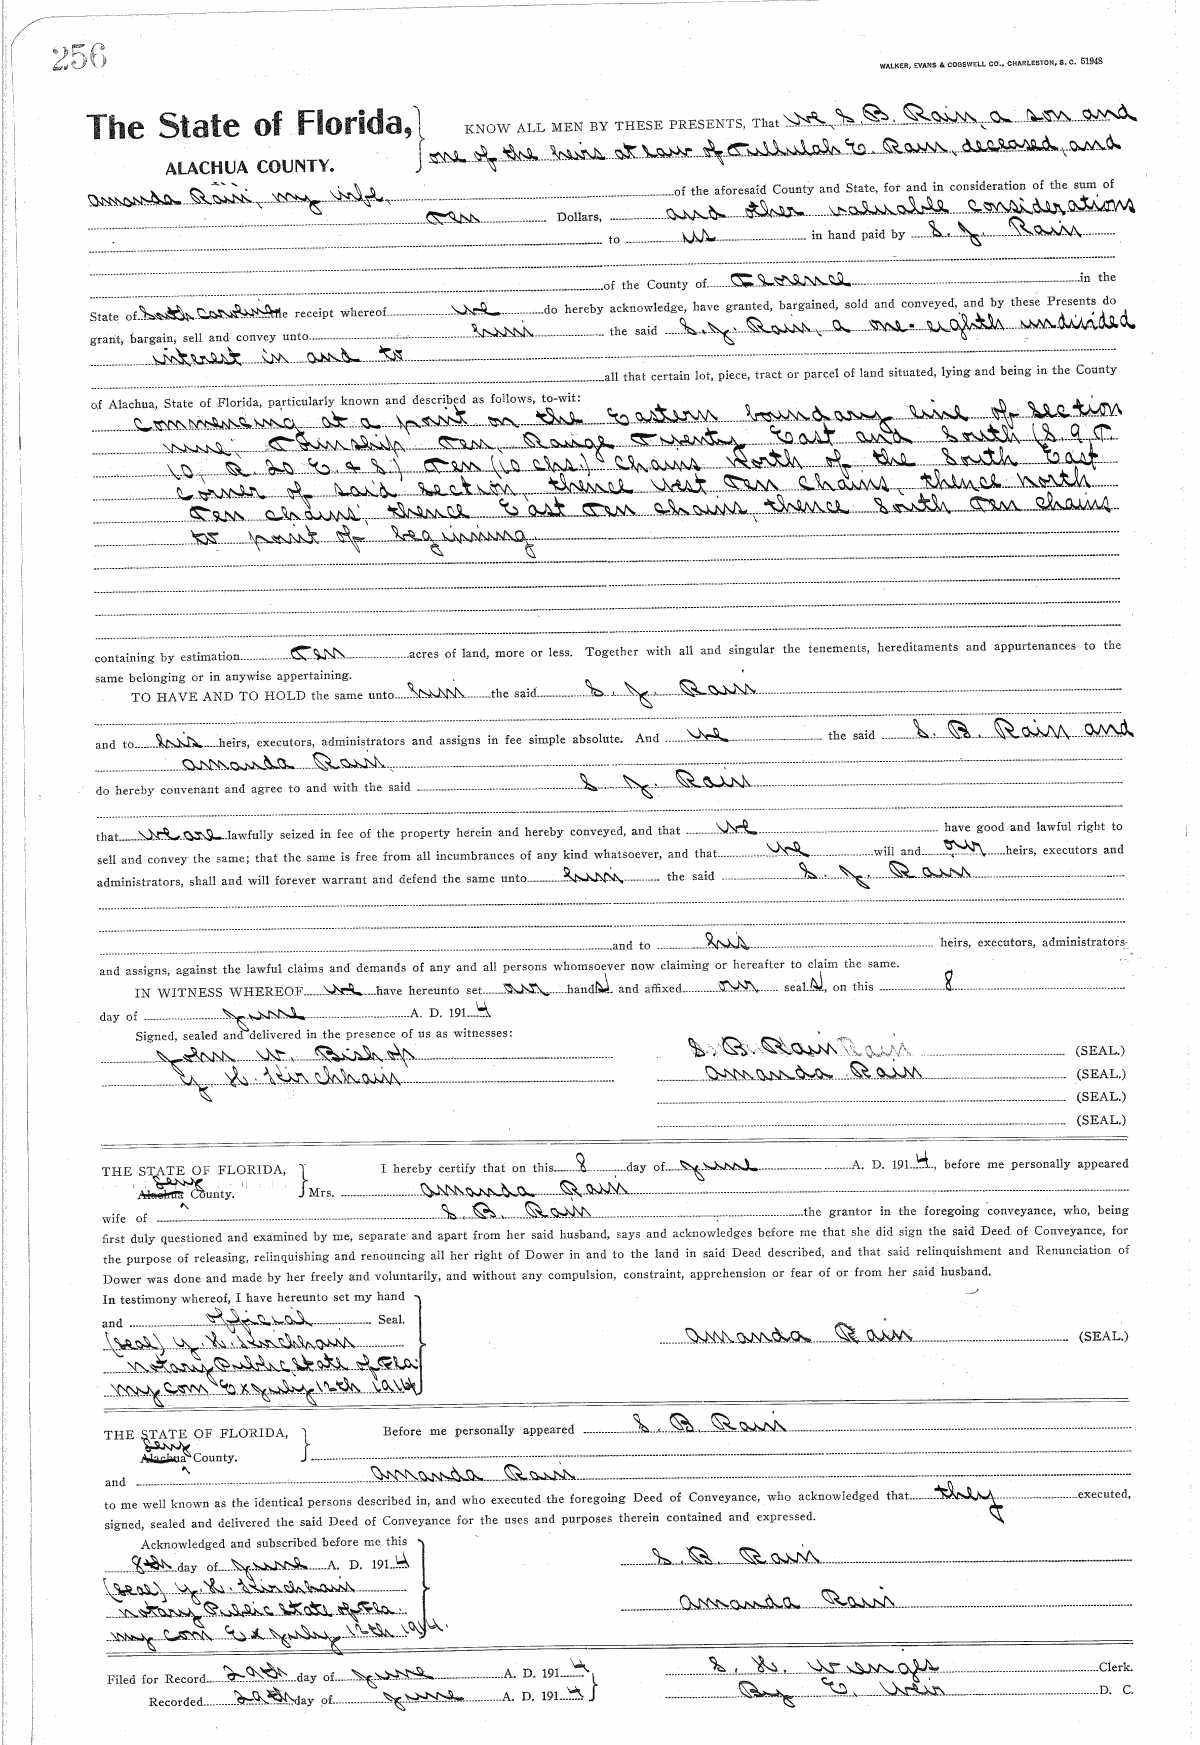 256
WALKER, EVANS & COGSWELL CO., CHARLESTON, S. C. 51948
The State of Florida, KNOW ALL MEN BY THESE PRESENTS, That We, S. B. Rain, a son and
ALACHUA COUNTY. one of the heirs at law of Tullulah E. Rain, deceased, and
Amanda Rain, my wife, of the aforesaid County and State, for and in consideration of the sum of
Ten Dollars, and other valuable considerations
to us in hand paid by S. J. Rain
of the County of Florence in the
State of South Carolina the receipt whereof we do hereby acknowledge, have granted, bargained, sold and conveyed, and by these Presents do
grant, bargain, sell and convey unto him the said S. J. Rain, a one-eighth undivided
interest in and to
all that certain lot, piece, tract or parcel of land situated, lying and being in the County
of Alachua, State of Florida, particularly known and described as follows, to-wit:
Commencing at a point on the Eastern boundary line of Section
nine; Township Ten, Range Twenty East and South (S. 9 T.
10, R. 20 E & S.) Ten (10 chs.) chains North of the South East
corner of said section, thence West Ten chains, thence north
Ten chains; thence East Ten chains, thence South Ten chains
to point of beginning
containing by estimation Ten acres of land, more or less. Together with all and singular the tenements, hereditaments and appurtenances to the
same belonging or in anywise appertaining.
TO HAVE AND TO HOLD the same unto him the said S. J. Rain
and to his heirs, executors, administrators and assigns in fee simple absolute. And we the said S. B. Rain and
Amanda Rain
do hereby convenant and agree to and with the said S J. Rain
that we are lawfully seized in fee of the property herein and hereby conveyed, and that we have good and lawful right to
sell and convey the same; that the same is free from all incumbrances of any kind whatsoever, and that we will and our heirs, executors and
administrators, shall and will forever warrant and defend the same unto him the said S. J. Rain
and to his heirs, executors, administrators
and assigns, against the lawful claims and demands of any and all persons whomsoever now claiming or hereafter to claim the same.
IN WITNESS WHEREOF we have hereunto set our hands and affixed our seals, on this 8
day of June A. D. 1914
Signed, sealed and delivered in the presence of us as witnesses:
John W. Bishop S. B. Rain Rain (SEAL.)
Y. H. Kirchhain Amanda Rain (SEAL.)
(SEAL.)
(SEAL.)
THE STATE OF FLORIDA, I hereby certify that on this 8 day of June A. D. 1914, before me personally appeared
Levy
Alachua County. Mrs. Amanda Rain
wife of S. B. Rain the grantor in the foregoing conveyance, who, being
first duly questioned and examined by me, separate and apart from her said husband, says and acknowledges before me that she did sign the said Deed of Conveyance, for
the purpose of releasing, relinquishing and renouncing all her right of Dower in and to the land in said Deed described, and that said relinquishment and Renunciation of
Dower was done and made by her freely and voluntarily, and without any compulsion, constraint, apprehension or fear of or from her said husband.
In testimony whereof, I have hereunto set my hand
and official Seal.
(Seal) Y. H. Kirchhain Amanda Rain (SEAL.)
Notary Public, State of Fla.
My Com Ex July 12th 1914
THE STATE OF FLORIDA, Before me personally appeared S. B. Rain
Levy
Alachua County.
and Amanda Rain
to me well known as the identical persons described in, and who executed the foregoing Deed of Conveyance, who acknowledged that they executed,
signed, sealed and delivered the said Deed of Conveyance for the uses and purposes therein contained and expressed.
Acknowledged and subscribed before me this
8th day of June A. D. 1914 S. B. Rain
(Seal) Y. H. Kirchhain
Notary Public State of Fla. Amanda Rain
My Com Ex July 12th 1914.
Filed for Record 29th day of June A. D. 1914 S. H. Wienges Clerk.
Recorded 29th day of June A. D. 1914 By E. Weir D. C.